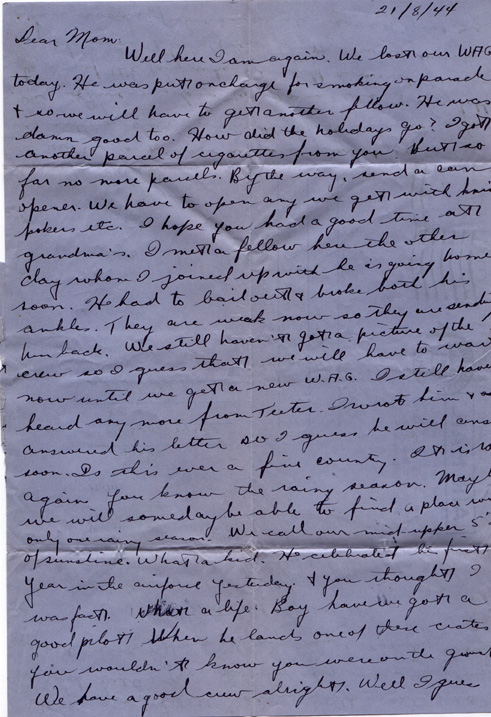 21/8/44
Dear Mom
Well here I am again. We lost our WAG
today. He was put on charge for smoking on parade
& so we will have to get another fellow. He was
damn good too. How did the holidays go? I got
another parcel of cigarettes from you. But so
far no more parcels. By the way, send a can
opener. We have to open any we get with
pokers etc. I hope you had a good time at
grandma's. I met a fellow here the other
day whom I joined up with he is going home
soon. He had to bail out & broke both his
ankles. They are weak now so they are
him back. We still haven't got a picture of the
crew so I guess that we will have to
now until we get a new W.A.G. I still
heard any more from Teeter. I wrote him &
answered his letter so I guess he will
soon. Is this ever a fine county. It is
again you know the rainy season.
we will someday be able to find a place
only one rainy season. We call our mid upper
of sunshine. What a kid. He celebrated his first
year in the airforce yesterday. & you thought I
was fast. What a life. Boy have we got a
good pilot. When he lands one of these crates
you wouldn't know you were on the
We have a good crew alright. Well I guess